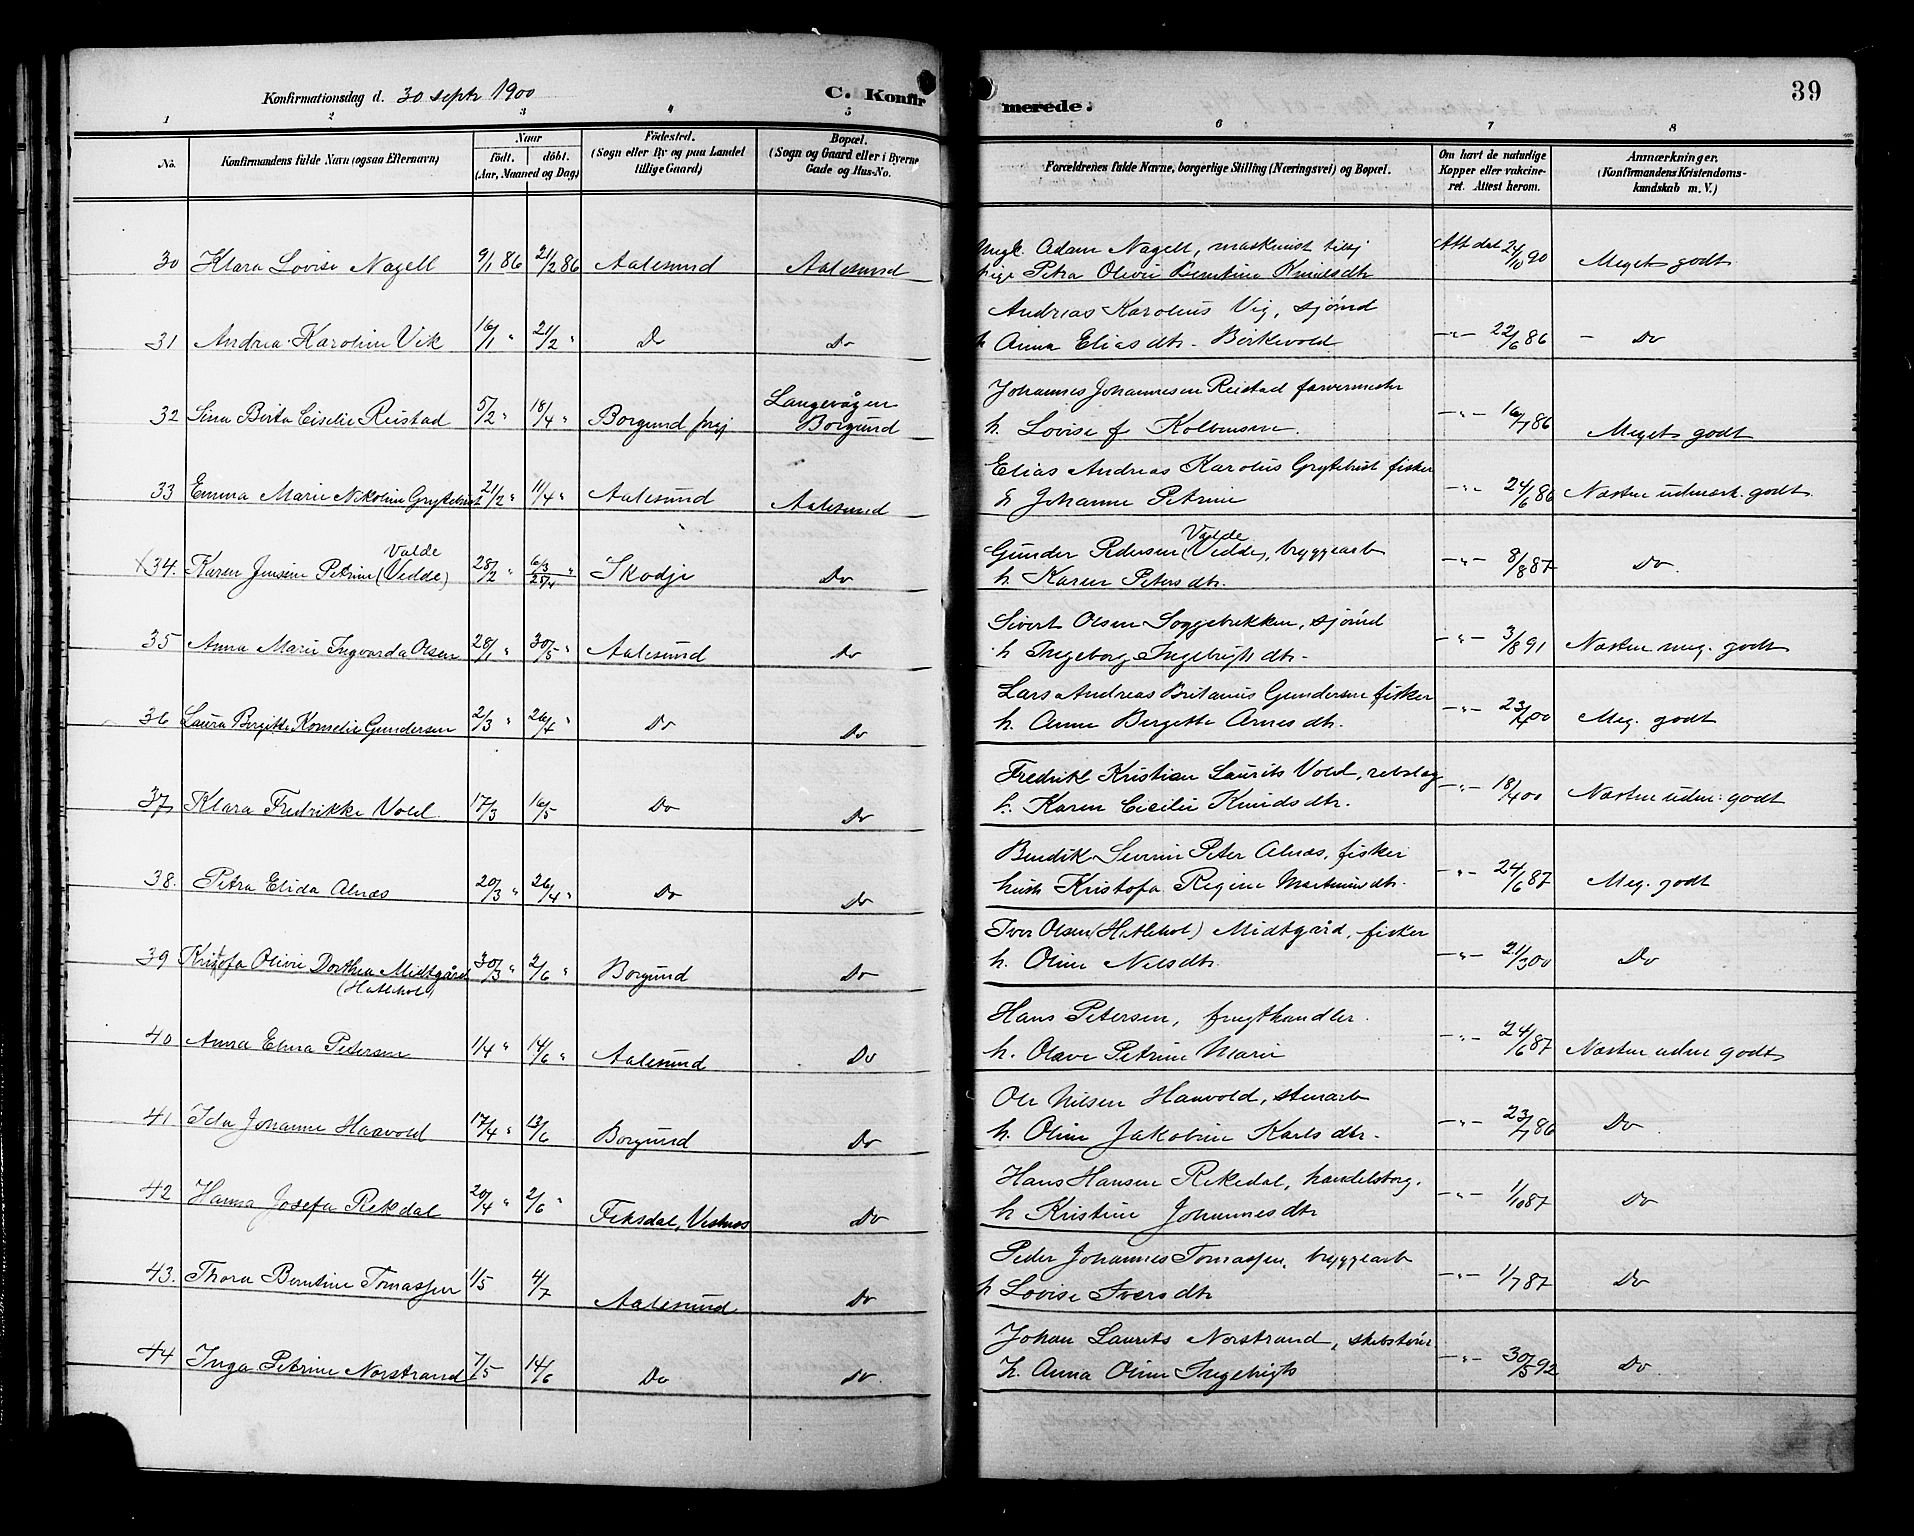 Konfirmationsdag d. 30 septr 1900
C. Konfir
merede.
39
1 2 3 4 5 6 7 8
No. Konfirmandens fulde Navn (ogsaa Efternavn) Naar født. døbt. (Aar, Maaned og Dag) Fødested. (Sogn eller By og paa Landet tillige Gaard) Bopæl. (Sogn og Gaard eller i Byerne Gade og Hus-No. Forældrenes fulde Navne, borgerlige Stilling (Næringsvei) og Bopæl. Om havt de naturlige Kopper eller vakcineret. Attest herom. Anmærkninger. (Konfirmandens Kristendomskundskab m. V.)
30 Klara Lovise Nagell 9/1 86 21/2 86 Aalesund Aalesund Ungk. Adam Nagell, maskinist
pige Petra Olivie Berntine Knudsdtr Att dat 24/10 90 Meget godt
31 Andrea Karoline Vik 16/1 " 21/2 " Do Do Andreas Karolius Vig, sjømd
h Anna Eliasdtr. Birkevold -"- 22/6 86 - Do
32 Sina Berta Cicilie Reistad 5/2 " 18/4 " Borgund prgj Langevågen Borgund Johannes Johannesen Reistad farvermestr
h. Lovise f Kolbensen. -"- 16/7 86 Meget godt
33 Emma Marie Nikoline Grytebust 21/2 " 11/4 " Aalesund Aalesund Elias Andreas Karolus Grytebust fisker
h Johanne Petrine -"- 24/6 86 Næsten udmærk. godt
x34. Karen Jensine Petrine (Valde Vedde) 28/2 " 6/3 " 25/4 Skodje Do Gunder Pedersen (Valde Vedde), bryggearb
h Karen Petersdtr. -"- 8/8 87 Do.
35 Anna Marie Ingvarda Olsen 28/1 " 30/5 " Aalesund Do Sivert Olsen Soggebakken, sjømd
h Ingeborg Ingebrigtsdtr. -"- 3/8 91 Næsten meg. godt
36 Laura Bergitte Kornelie Gundersen 2/3 " 26/4 " Do Do Lars Andreas Britanus Gundersen fisker
h. Anne Bergitte Arnesdtr. -"- 23/4 00 Meg. godt
37 Klara Fredrikke Vold 17/3 16/5 Do Do Fredrik Kristian Laurits Vold, rebslag
h. Karen Cicilie Knudsdtr. -"- 18/4 00 Næsten udm. godt
38. Petra Elida Alnæs 20/3 " 26/4 " Do Do Bendik Severin Peter Alnæs, fisker
hust Kristofa Regine Martinusdtr. -"- 24/6 87 Meg. godt
39 Kristofa Olivie Dorthea Midtgård (Hatlehol) 30/3 " 2/6 " Borgund Do Iver Olsen (Hatlehol) Midtgård, fisker
h. Oline Nilsdtr. -"- 21/3 00 Do
40 Anna Elvira Petersen 1/4 " 14/6 " Aalesund Do Hans Petersen, frugthandler.
h. Olave Petrine Marie -"- 24/6 87 Næsten udm godt
41 Ida Johanne Haavold 17/4 " 13/6 Borgund Do Ole Nilsen Haavold, stenarb
h. Oline Jakobine Karlsdtr. -"- 23/7 86 Do
42 Hanna Josefa Rekdal 20/4 " 2/6 " Feksdal, Vestnes Do Hans Hansen Rekedal, handelsborg.
h Kristine Johannesdtr -"- 1/10 87 Do
43. Thora Berntine Tomassen 1/5 4/7 Aalesund Do Peder Johannes Tomassen, bryggearb
h Lovise Iversdtr -"- 1/7 87 Do
44 Inga Petrine Norstrand 7/5 14/6 Do Do Johan Laurits Norstrand, skibstømr
h. Anna Oline Ingebrigts -"- 30/5 92 Do